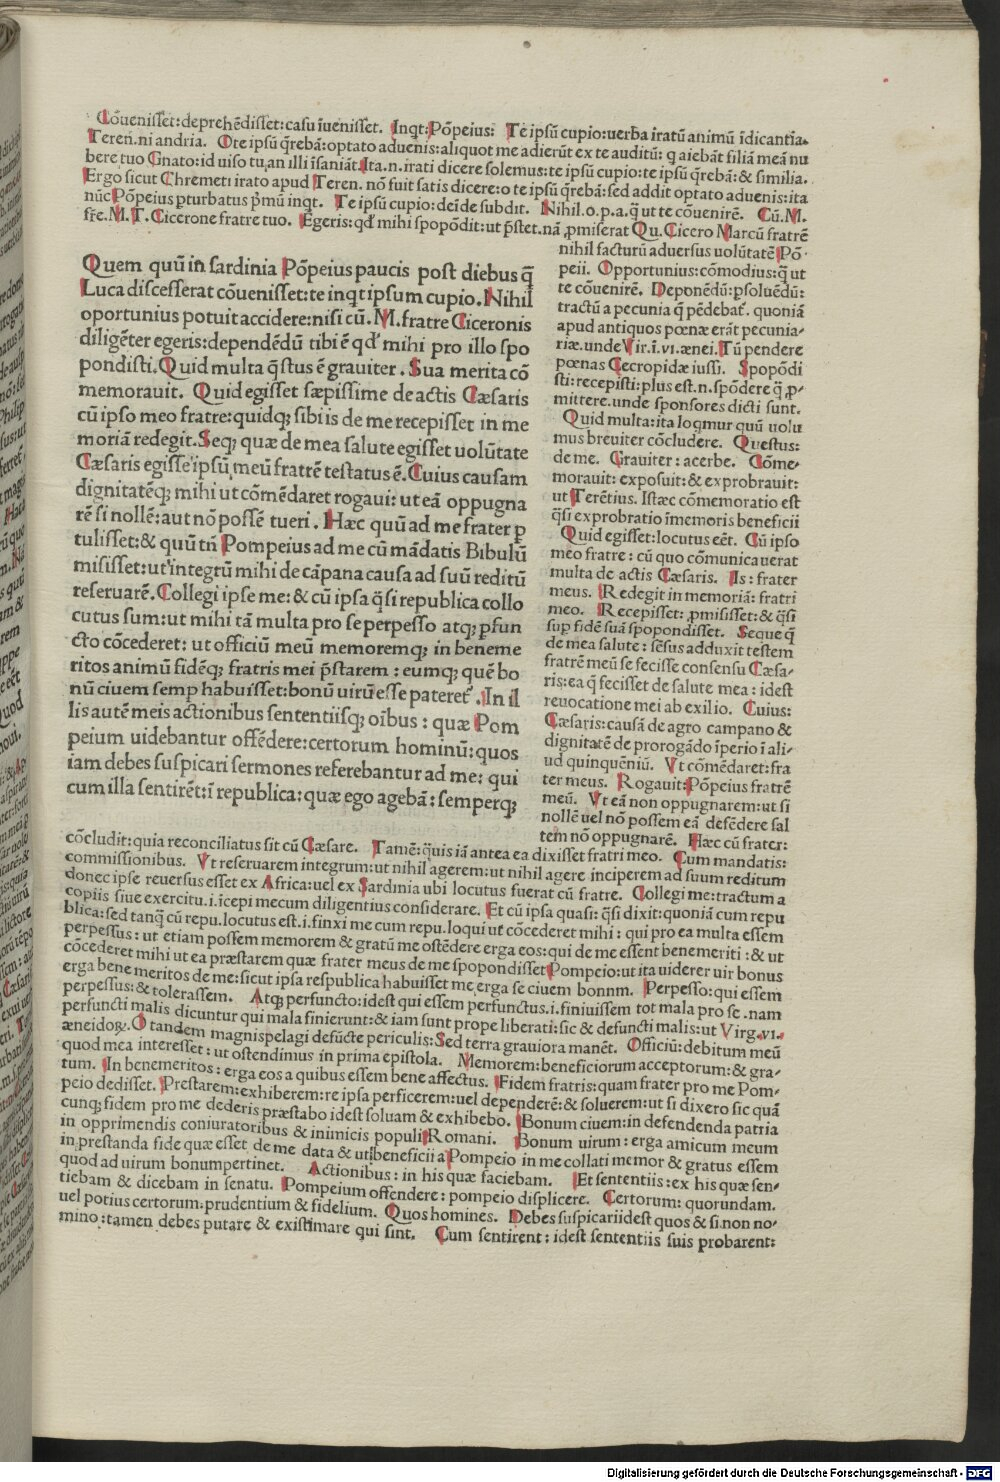 Cōuenisset:deprehēdisset:casu īuenisset. Inqt:Pōpeius: Te ipsū cupio:uerba iratū animū īdicantia.
Teren.ni andria. O te ipsū q̄rebā:optato aduenis:aliquot me adierūt ex te auditū: q aiebāt filiā meā nu
bere tuo Gnato:id uiso tu,an illi īsaniāt.Ita.n.irati dicere solemus:te ipsū cupio:te ipsū q̄rebā:& similia.
Ergo sicut Chremeti irato apud Teren. nō fuit satis dicere:o te ipsū q̄rebā:sed addit optato aduenis:ita
nūc Pōpeius pturbatus p̄mū inqt. Te ipsū cupio:deīde subdit. Nihil.o.p.a.q̄ ut te cōuenirē. Cū.M.
fr̄e.M.T.Cicerone fratre tuo. Egeris:qd' mihi spopōdit:ut p̄stet.nā pmiserat Qu.Cicero Marcū fratrē
Quem quū in sardinia Pōpeius paucis post diebus q̄
Luca discesserat cōuenisset:te inqt ipsum cupio.Nihil
oportunius potuit accidere:nisi cū.M.fratre Ciceronis
diligēter egeris:dependēdū tibi ē qd' mihi pro illo spo
pondisti.Quid multa q̄stus ē grauiter.Sua merita cō
memorauit. Quid egisset sæpissime de actis Cæsaris
cū ipso meo fratre:quidq; sibi is de me recepisset in me
moriā redegit.Seq; quæ de mea salute egisset uolūtate
Cæsaris egisse ipsū meū fratrē testatus ē.Cuius causam
dignitatēq; mihi ut cōmēdaret rogaui:ut eā oppugna
rē si nollē:aut nō possē tueri.Hæc quū ad me frater p
tulisset:& quū tn̄ Pompeius ad me cū mādatis Bibulū
misisset:ut integrū mihi de cāpana causa ad suū reditū
reseruarē.Collegi ipse me:& cū ipsa q̄si republica collo
cutus sum:ut mihi tā multa pro se perpesso atq; pfun
cto cōcederet: ut officiū meū memoremq; in beneme
ritos animū fidēq; fratris mei p̄starem:eumq; quē bo
nū ciuem semp habuisset:bonū uirū esse pateret'.In il
lis autē meis actionibus sententiisq; oībus: quæ Pom
peium uidebantur offēdere:certorum hominū:quos
iam debes suspicari sermones referebantur ad me: qui
cum illa sentirēt:ī republica:quæ ego agebā:semperq;
nihil facturū aduersus uolūtatē Pō-
peii. Opportunius:cōmodius:q̄ ut
te cōuenirē. Deponēdū:psoluēdū:
tractū a pecunia q̄ pēdebat'. quoniā
apud antiquos pœnæ erāt pecunia-
riæ.unde Vir.ī.vi.ænei.Tū pendere
pœnas Cecropidæ iussi. Spopōdi
sti:recepisti:plus est.n.spōdere q̄ p-
mittere.unde sponsores dicti sunt.
Quid multa:ita loqmur quū uolu
mus breuiter cōcludere. Questus:
de me. Grauiter:acerbe. Cōme-
morauit: exposuit:& exprobrauit:
ut Terētius. Istæc cōmemoratio est
q̄si exprobratio īmemoris beneficii
Quid egisset:locutus eēt. Cū ipso
meo fratre: cū quo cōmunicauerat
multa de actis Cæsaris. Is: frater
meus. Redegit in memoriā: fratri
meo. Recepisset: pmisisset:& q̄si
sup fidē suā spopondisset. Seque q̄
de mea salute: sēsus adduxit testem
fratrē meū se fecisse consensu Cæsa-
ris:ea q̄ fecisset de salute mea: idest
reuocatione mei ab exilio. Cuius:
Cæsaris:causā de agro campano &
dignitatē de prorogādo īperio ī ali-
ud quinquēniū. Vt cōmēdaret:fra
ter meus. Rogauit:Pōpeius fratrē
meū. Vt eā non oppugnarem:ut si
nollē uel nō possem eā defēdere sal
tem nō oppugnarē. Hæc cū frater:
cōcludit:quia reconciliatus sit cū Cæsare. Tamē:quis iā antea ea dixisset fratri meo. Cum mandatis:
commissionibus. Vt reseruarem integrum:ut nihil agerem:ut nihil agere inciperem ad suum reditum
donec ipse reuersus esset ex Africa:uel ex Sardinia ubi locutus fuerat cū fratre. Collegi me:tractum a
copiis siue exercitu.i.īcepi mecum diligentius considerare. Et cū ipsa quasi: q̄si dixit:quoniā cum repu
blica:sed tanq̄ cū repu.locutus est.i.finxi me cum repu.loqui ut cōcederet mihi: qui pro ea multa essem
perpessus: ut etiam possem memorem & gratū me ostēdere erga eos:qui de me essent benemeriti:& ut
cōcederet mihi ut ea præstarem quæ frater meus de me spopondisset Pompeio:ut ita uiderer uir bonus
erga bene meritos de me:sicut ipsa respublica habuisset me erga se ciuem bonnm. Perpesso:qui essem
perpessus:& tolerassem. Atq; perfuncto:idest qui essem perfunctus.i.finiuissem tot mala pro se.nam
perfuncti malis dicuntur qui mala finierunt:& iam sunt prope liberati:sic & defuncti malis:ut Virg.vi.
æneidoꝝ.O tandem magnis pelagi defūcte periculis:Sed terra grauiora manēt. Officiū:debitum meū
quod mea interesset: ut ostendimus in prima epistola. Memorem:beneficiorum acceptorum:& gra-
tum. In benemeritos: erga eos a quibus essem bene affectus. Fidem fratris:quam frater pro me Pom-
peio dedisset. Prestarem:exhiberem:re ipsa perficerem:uel dependerē:& soluerem:ut si dixero sic quā
cunq; fidem pro me dederis præstabo idest soluam & exhibebo. Bonum ciuem:in defendenda patria
in opprimendis coniuratoribus & inimicis populi Romani. Bonum uirum: erga amicum meum
in prestanda fide quæ esset de me data & uti beneficii a Pompeio in me collati memor & gratus essem
quod ad uirum bonum pertinet. Actionibus: in his quæ faciebam. Et sententiis:ex his quæ sen-
tiebam & dicebam in senatu. Pompeium offendere: pompeio displicere. Certorum: quorundam.
uel potius certorum:prudentium & fidelium. Quos homines. Debes suspicari idest quos & si non no-
mino:tamen debes putare & existimare qui sint. Cum sentirent: idest sententiis suis probarent:
Digitalisierung gefördert durch die Deutsche Forschungsgemeinschaft - DFG